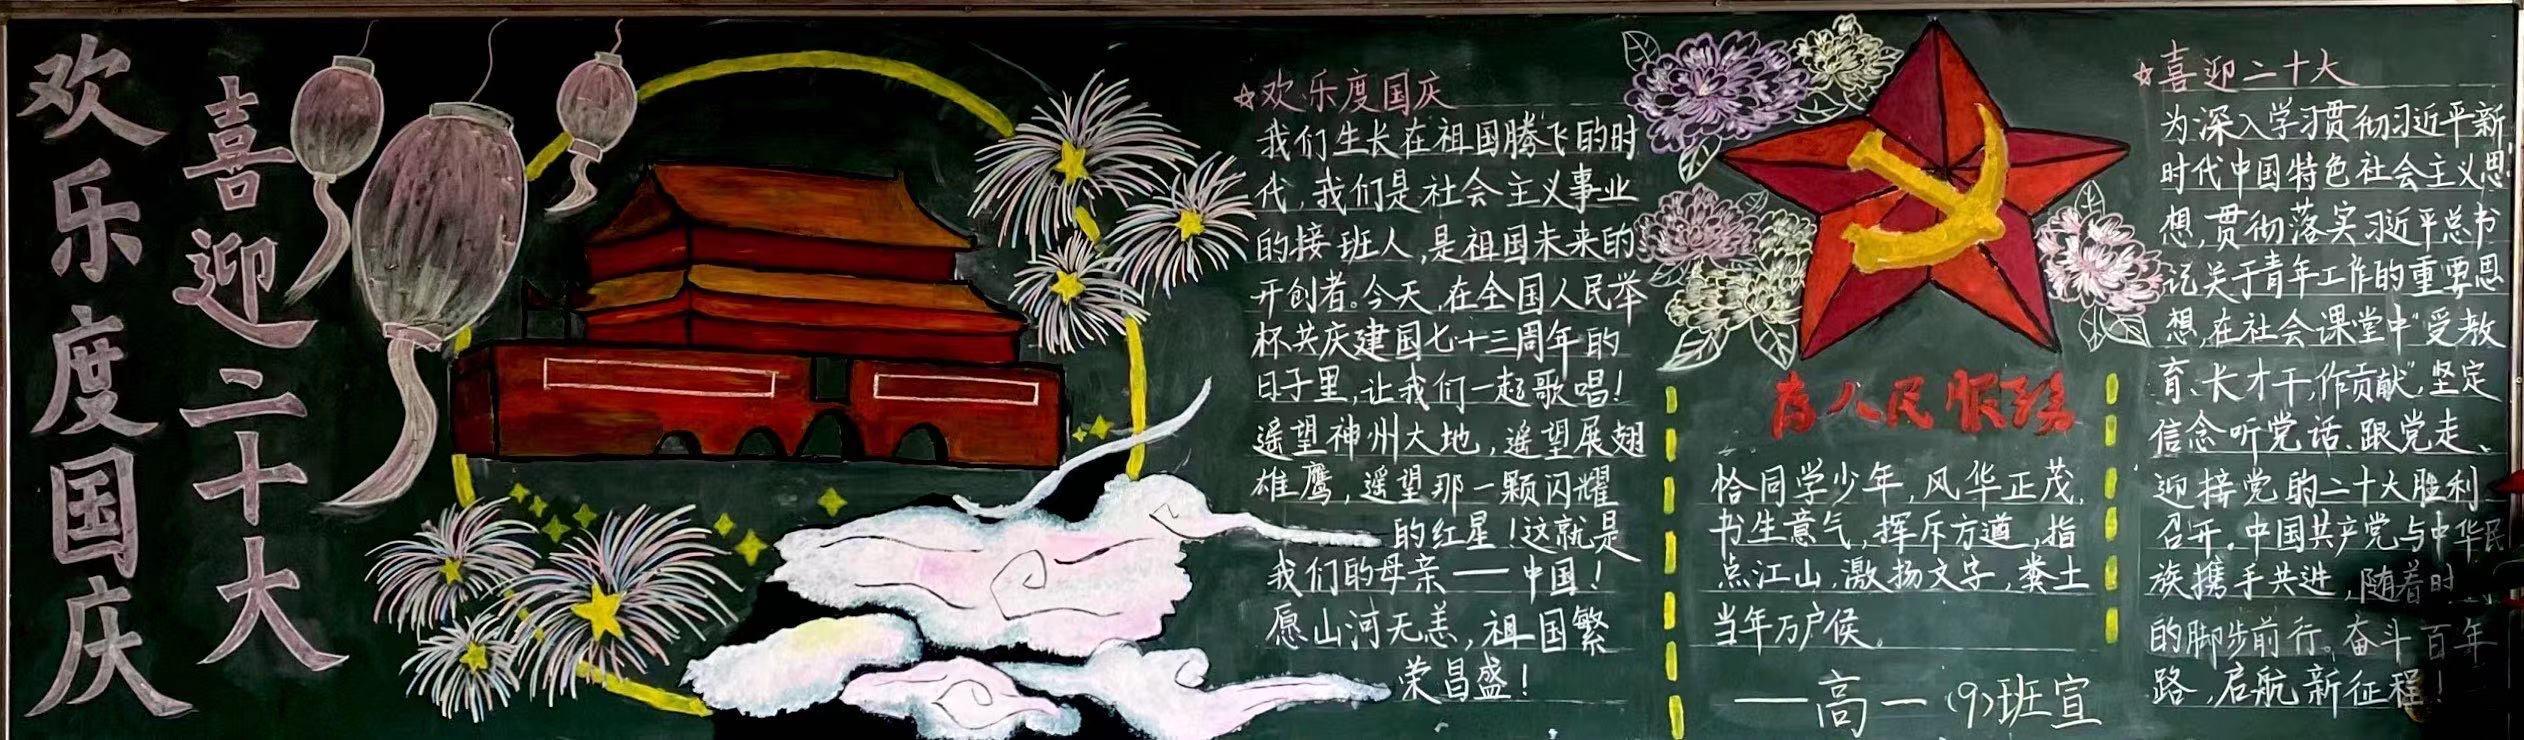 欢乐度国庆
喜迎二十大
☆欢乐度国庆
我们生长在祖国腾飞的时
代，我们是社会主义事业
的接班人，是祖国未来的
开创者。今天，在全国人民举
杯共庆建国七十三周年的
日子里，让我们一起歌唱！
遥望神州大地，遥望展翅
雄鹰，遥望那一颗闪耀
的红星！这就是
我们的母亲——中国！
愿山河无恙，祖国繁
荣昌盛！
为人民服务
恰同学少年，风华正茂，
书生意气，挥斥方遒，指
点江山，激扬文字，粪土
当年万户侯。
——高一（9）班宣
☆喜迎二十大
为深入学习贯彻习近平新
时代中国特色社会主义思
想，贯彻落实习近平总书
记关于青年工作的重要思
想，在社会课堂中“受教
育、长才干，作贡献”，坚定
信念听党话、跟党走、
迎接党的二十大胜利
召开。中国共产党与中华民
族携手共进，随着时
的脚步前行。奋斗百年
路，启航新征程！